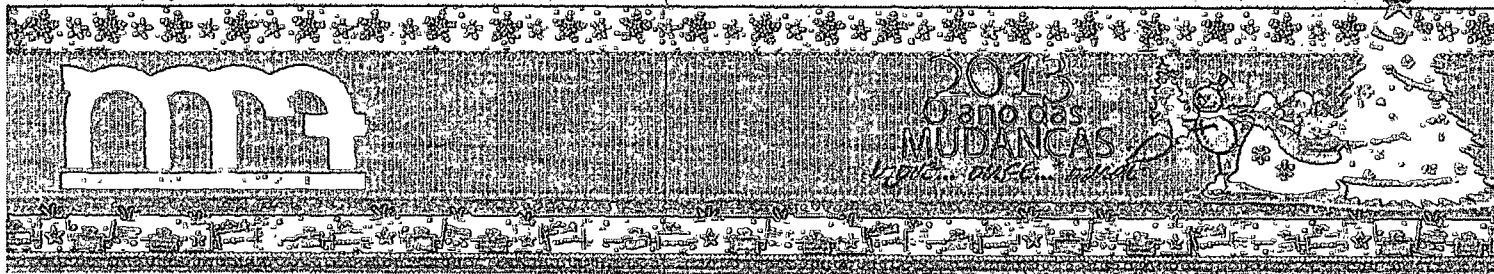 mf
2013
O ano das
MUDANÇAS
ouse...